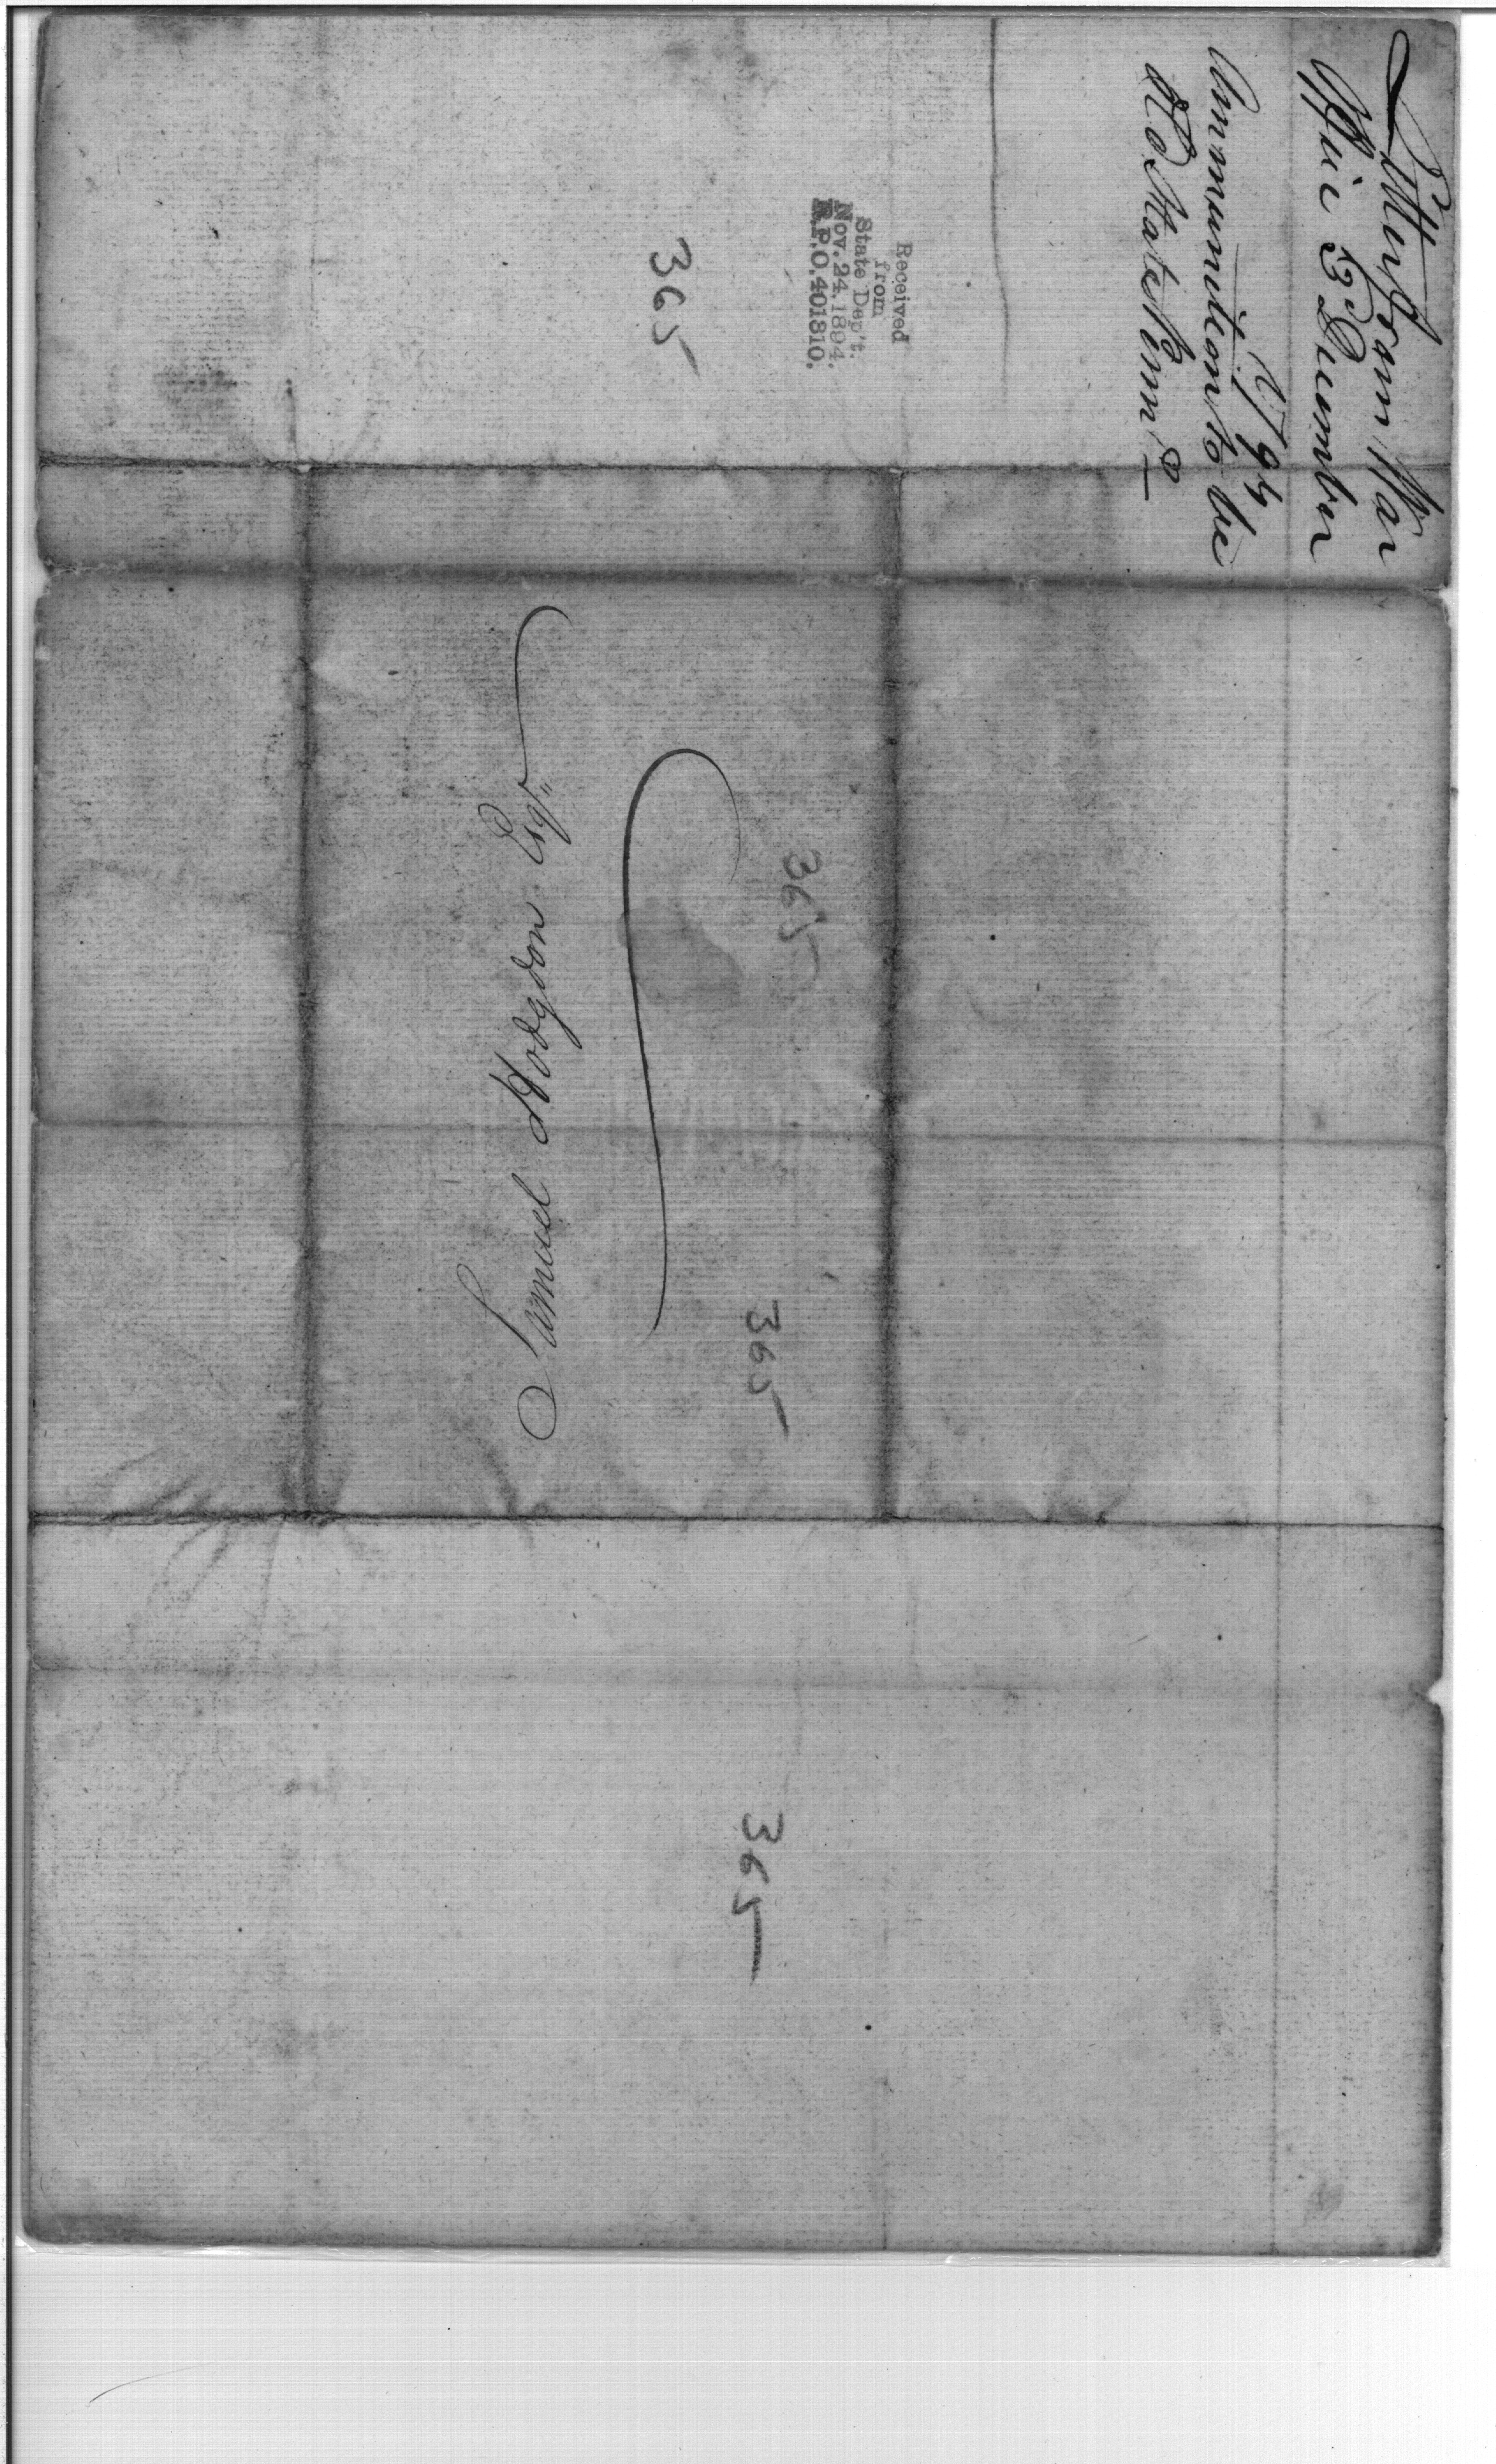 Letter from War
Office 13 December
1794
Ammunition to be
Received
from
State Dep't.
Nov. 24, 1894.
R.P.O. 401810.
365
Samuel Hodgdon Esqr.
365
365
365